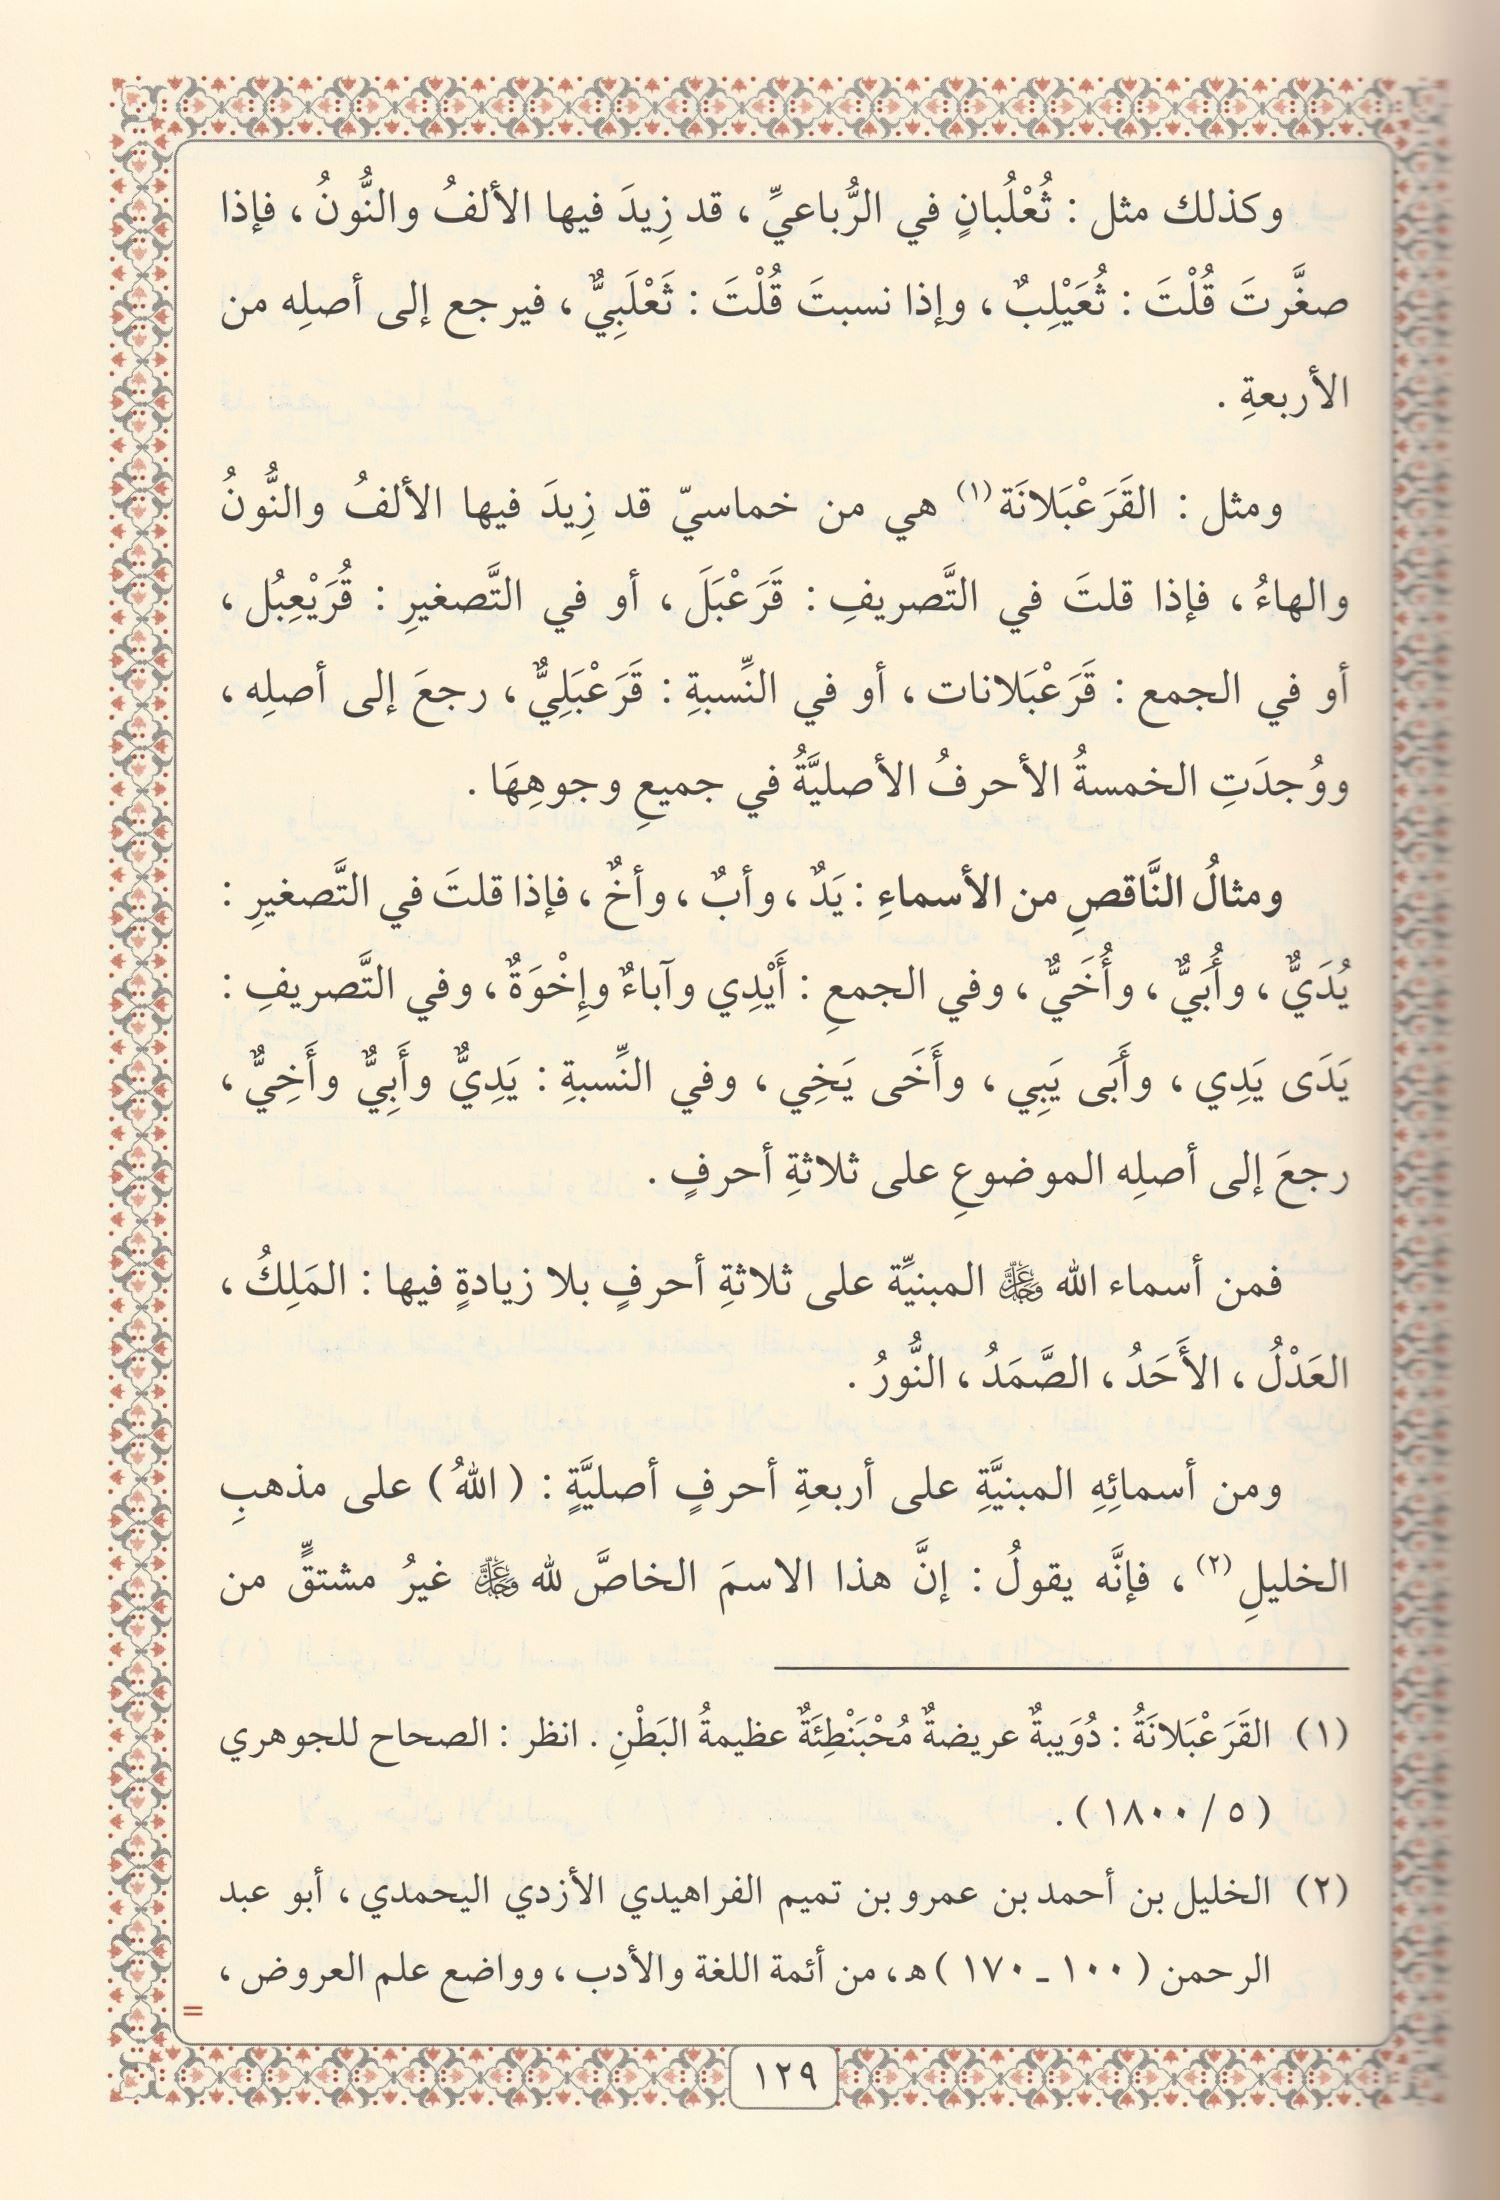 وكذلك مثل : ثُعْلُبانٍ في الرُّباعيِّ ، قد زِيدَ فيها الألفُ والنُّونُ ، فإذا
صغَّرتَ قُلْتَ : ثُعَيْلِبٌ ، وإذا نسبتَ قُلْتَ : ثَعْلَبِيٌّ ، فيرجع إلى أصلِه من
الأربعةِ .
ومثل : القَرَعْبَلانَة(١) هي من خماسيّ قد زِيدَ فيها الألفُ والنُّونُ
والهاءُ ، فإذا قلتَ في التَّصريفِ : قَرَعْبَلَ ، أو في التَّصغيرِ : قُرَيْعِبُل ،
أو في الجمع : قَرَعْبَلانات ، أو في النِّسبةِ : قَرَعْبَلِيٌّ ، رجعَ إلى أصلِه ،
ووُجدَتِ الخمسةُ الأحرفُ الأصليَّةُ في جميعِ وجوهِهَا .
ومثالُ النَّاقصِ من الأسماءِ : يَدٌ ، وأبٌ ، وأخٌ ، فإذا قلتَ في التَّصغيرِ :
يُدَيٌّ ، وأُبَيٌّ ، وأُخَيٌّ ، وفي الجمعِ : أَيْدِي وآباءٌ وإِخْوَةٌ ، وفي التَّصريفِ :
يَدَى يَدِي ، وأَبَى يَبِي ، وأَخَى يَخِي ، وفي النِّسبةِ : يَدِيٌّ وأَبِيٌّ وأَخِيٌّ ،
رجعَ إلى أصلِه الموضوعِ على ثلاثةِ أحرفٍ .
فمن أسماء الله ﷻ المبنيِّة على ثلاثةِ أحرفٍ بلا زيادةٍ فيها : المَلِكُ ،
العَدْلُ ، الأَحَدُ ، الصَّمَدُ ، النُّورُ .
ومن أسمائِهِ المبنيَّةِ على أربعةِ أحرفٍ أصليَّةٍ : ( اللهُ ) على مذهبِ
الخليلِ(٢) ، فإنَّه يقولُ : إنَّ هذا الاسمَ الخاصَّ لله ﷻ غيرُ مشتقٍّ من
(١) القَرَعْبَلانَةُ : دُوَيبةٌ عريضةٌ مُحْبَنْطِئَةٌ عظيمةُ البَطْنِ . انظر : الصحاح للجوهري
( ٥/ ١٨٠٠ ) .
(٢) الخليل بن أحمد بن عمرو بن تميم الفراهيدي الأزدي اليحمدي ، أبو عبد
الرحمن ( ١٠٠ ـ ١٧٠ )هـ ، من أئمة اللغة والأدب ، وواضع علم العروض ،
=
١٢٩